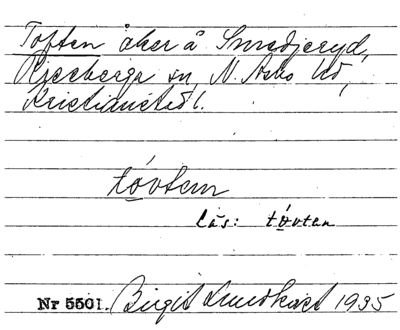 Toften åker å Smedjeryd,
Riseberga sn, N. Åsbo hd,
Kristianst.s l.
tóvtem
läs: tóvten
Nr 5501. Birgit Lundkvist 1935